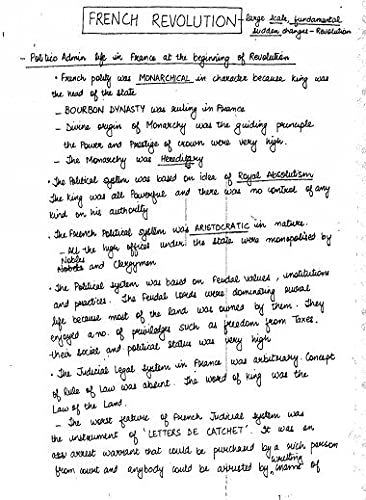 FRENCH REVOLUTION - large scale, fundamental
sudden changes - Revolution
- Politico Admin life in France at the beginning of Revolution
• French polity was MONARCHICAL in character because King was
the head of the state
- BOURBON DYNASTY was ruling in France
- Divine origin of Monarchy was the guiding principle
the Power and Prestige of crown were very high.
- The Monarchy was Hereditary
• The Political system was based on idea of Royal Absolutism
The King was all Powerful and there was no control of any
kind on his authority
• The French Political system was ARISTOCRATIC in nature.
- All the high offices under the state were monopolised by
Nobles
and Clergymen
• The Political system was based on Feudal values, institutions
and practices. The Feudal Lords were dominating rural
life because most of the land was owned by them. They
enjoyed a no. of priviledges such as freedom from Taxes.
their social and political status was very high
• The Judicial Legal system in France was arbitrary. Concept
of Rule of Law was absent. The word of King was the
Law of the Land.
- The worst feature of French Judicial system was
the instrument of 'LETTERS DE CATCHET'. It was an
arrest warrant that could be purchased by a rich person
from court and anybody could be arrested by writing name of